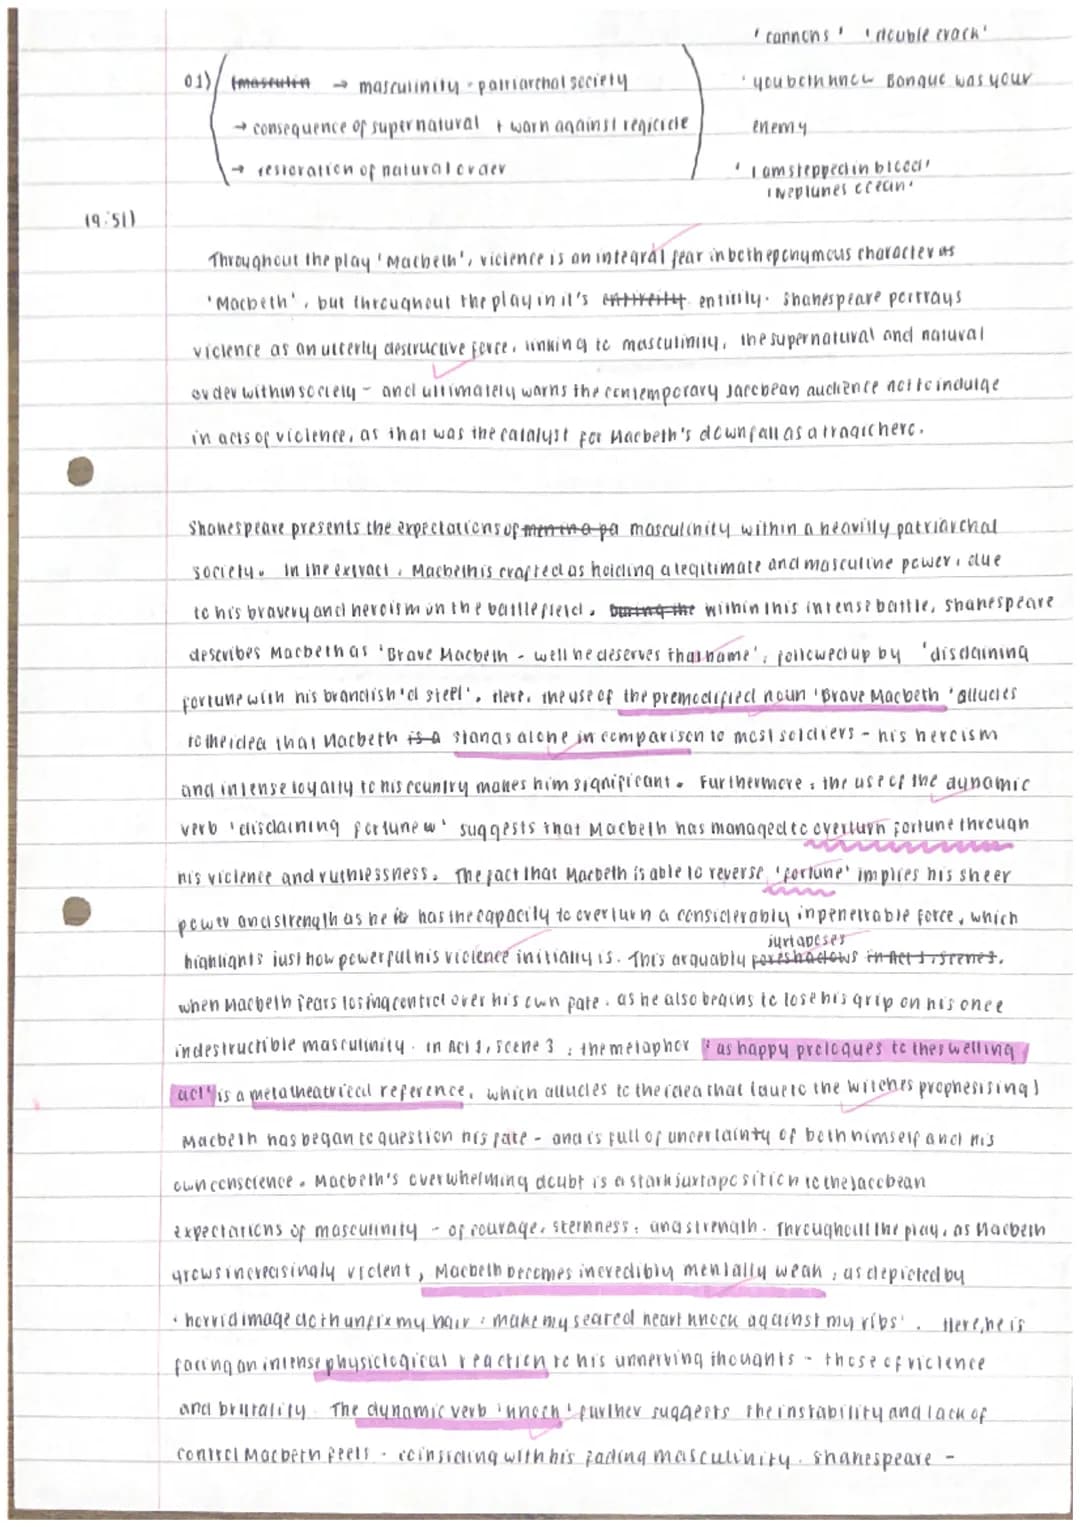 'cannons' 'double crack'
01) (masculin → masculinity - patriarchal society
→ consequence of supernatural + warn against regicide
→ restoration of natural order
'you both know Banquo was your
enemy
'I am stepped in blood'
'Neptunes ocean'
(9:51)
Throughout the play 'Macbeth', violence is an integral fear in both eponymous character as
'Macbeth', but throughout the play in it's entireity entirily. Shakespeare portrays
violence as an utterly destructive force, linking to masculinity, the supernatural and natural
order within society - and ultimately warns the contemporary Jacobean audience not to indulge
in acts of violence, as that was the catalyst for Macbeth's downfall as a tragic hero.
Shakespeare presents the expectations of men in a pa masculinity within a heavilly patriarchal
society. In the extract, Macbeth is crafted as holding a legitimate and masculine power, due
to his bravery and heroism on the battlefield. During the within this intense battle, Shakespeare
describes Macbeth as 'Brave Macbeth - well he deserves that name', followed up by 'disdaining
fortune with his brandish'd steel'. Here, the use of the premodified noun 'Brave Macbeth' alludes
to the idea that Macbeth is a stands alone in comparison to most soldiers - his heroism
and intense loyalty to his country makes him significant. Furthermore, the use of the dynamic
verb 'disdaining fortune' suggests that Macbeth has managed to overturn fortune through
his violence and ruthlessness. The fact that Macbeth is able to reverse 'fortune' implies his sheer
power and strength as he is has the capacity to overturn a considerably inpenetrable force, which
highlights just how powerful his violence initially is. This arguably foreshadows juxtaposes in Act 1, Scene 3,
when Macbeth fears losing control over his own fate, as he also begins to lose his grip on his once
indestructible masculinity. In Act 1, Scene 3, the metaphor 'as happy prologues to the swelling
act' is a metatheatrical reference, which alludes to the idea that (due to the witches prophesising)
Macbeth has began to question his fate - and is full of uncertainty of both himself and his
own conscience. Macbeth's overwhelming doubt is a stark juxtaposition to the Jacobean
expectations of masculinity - of courage, sternness, and strength. Throughout the play, as Macbeth
grows increasingly violent, Macbeth becomes incredibly mentally weak, as depicted by
'horrid image doth unfix my hair, make my seared heart knock against my ribs'. Here, he is
facing an intense physiological reaction to his unnerving thoughts - those of violence
and brutality. The dynamic verb 'knock' further suggests the instability and lack of
control Macbeth feels - coinsiding with his fading masculinity. Shakespeare -